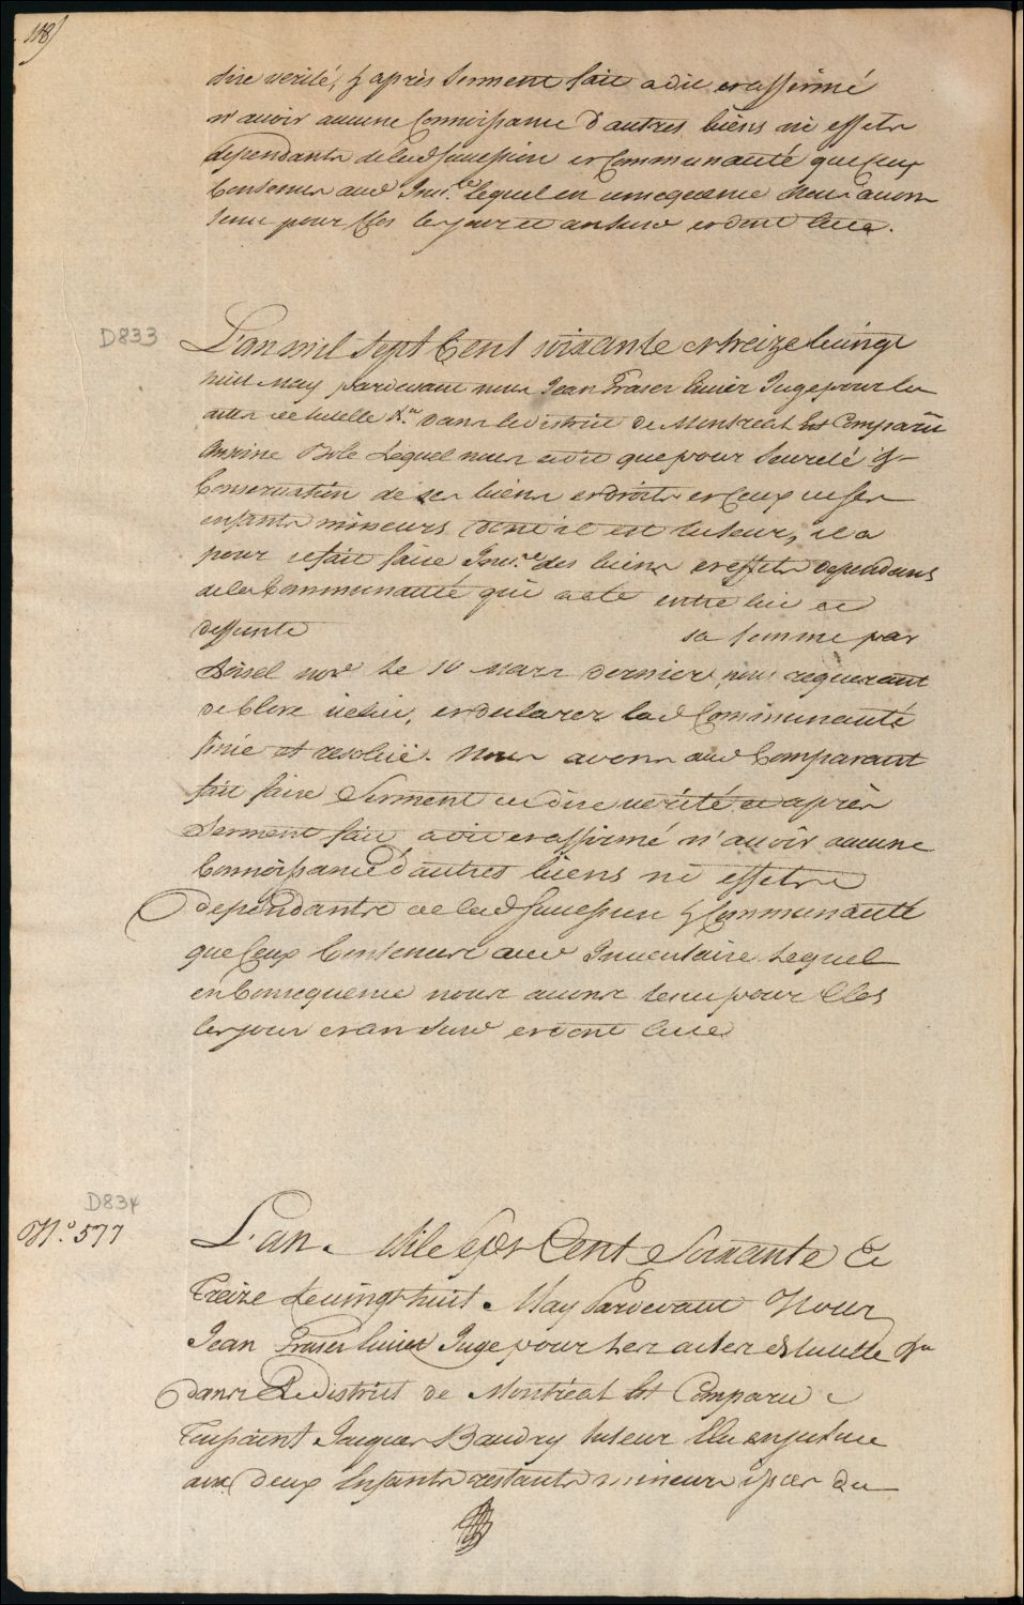 108)
dire verité, & après serment fait a dit et affirmé
n'avoir aucune Connoissance d'autres biens ni effets
dependants de lad succession et Communauté que Ceux
Contenus aud Inv.re Lequel en consequence Nous avons
tenu pour Clos les jour et an susd et dont acte.
D833
L'an mil Sept Cent soixante et treize le vingt
huit May pardevant nous Jean Fraser Ecuier Juge pour les
actes de tutelle &.a dans le district de Montreal Est Comparû
Antoine Lequel nous a dit que pour seureté &
Conservation de ses biens et droits et Ceux de ses
enfants mineurs dont il est tuteur, il a
pour ce fait faire Inv.re des biens et effets dependans
de la Communauté qui a eté entre lui et
deffunte sa femme par
not.e Le 10 Mars dernier, nous requerant
de Clore icelui, et declarer lad Communauté
finie et resolüe. Nous avons aud Comparant
fait faire Serment de dire verité et après
Serment fait a dit et affirmé n'avoir aucune
Connoissance d'autres biens ni effets
dependants de lad succession & Communauté
que Ceux Contenus aud Inventaire Lequel
en Consequence nous avons tenu pour Clos
les jour et an susd et dont acte
D834
N.o 577
L'an Mile Sept Cent Soixante Et
Treize Le vingt huit May Pardevant Nous
Jean Fraser Ecuier Juge pour Les actes de tutelle &a
dans Le district de Montréal Est Comparu
Toussaint Jacques Baudry tuteur Elu en justice
aux deux Enfants restants mineurs issus du